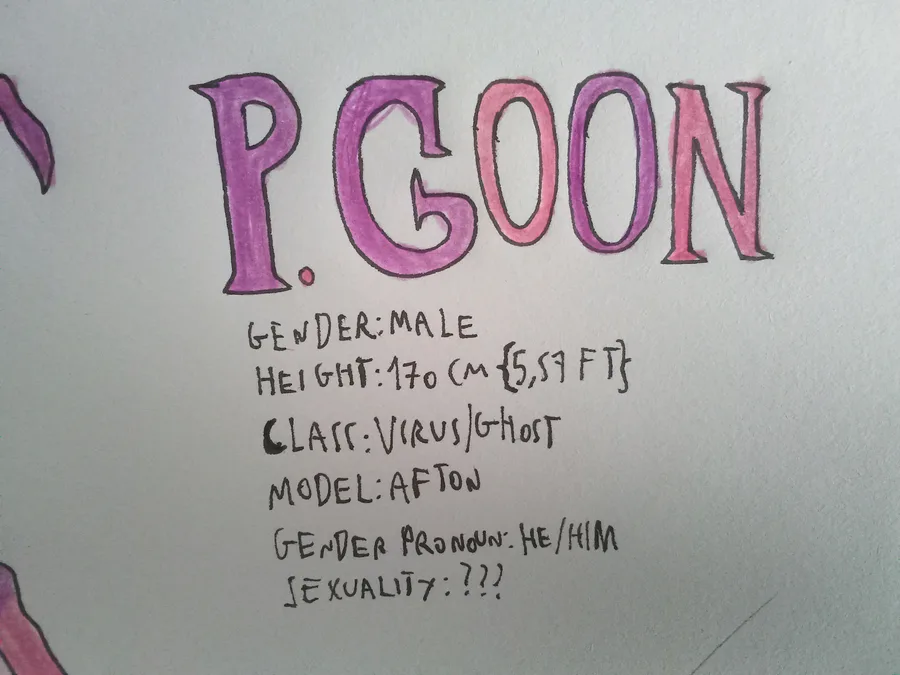 P.GOON
GENDER:MALE
HEIGHT:170 CM {5,57 FT}
CLASS:VIRUS/GHOST
MODEL:AFTON
GENDER PRONOUN:HE/HIM
SEXUALITY:???